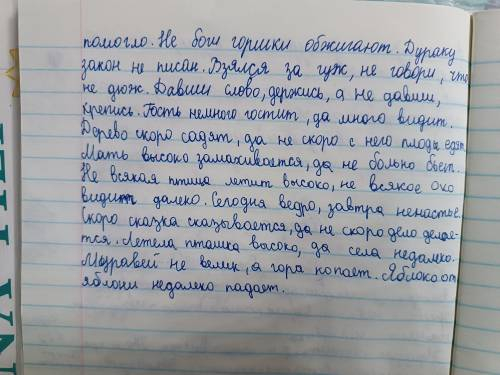 помогло. Не бои горшки обжигают. Дураку
закон не писан. Взялся за гуж, не говори, что
не дюж. Давши слово, держись, а не давши,
крепись. Гость немного гостит, да много видит.
Дерево скоро садят, да не скоро с него плоды едят.
Мать высоко замахивается, да не больно бьёт.
Не всякая птица летит высоко, не всякое око
видит далеко. Сегодня ведро, завтра ненастье.
Скоро сказка сказывается, да не скоро дело делае-
тся. Летела пташка высоко, да села недалеко.
Муравей не велик, а гора копает. Яблоко от
яблони недалеко падает.